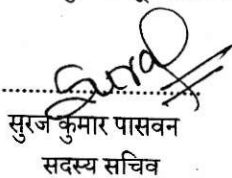 सुरज कुमार पासवन
सदस्य सचिव